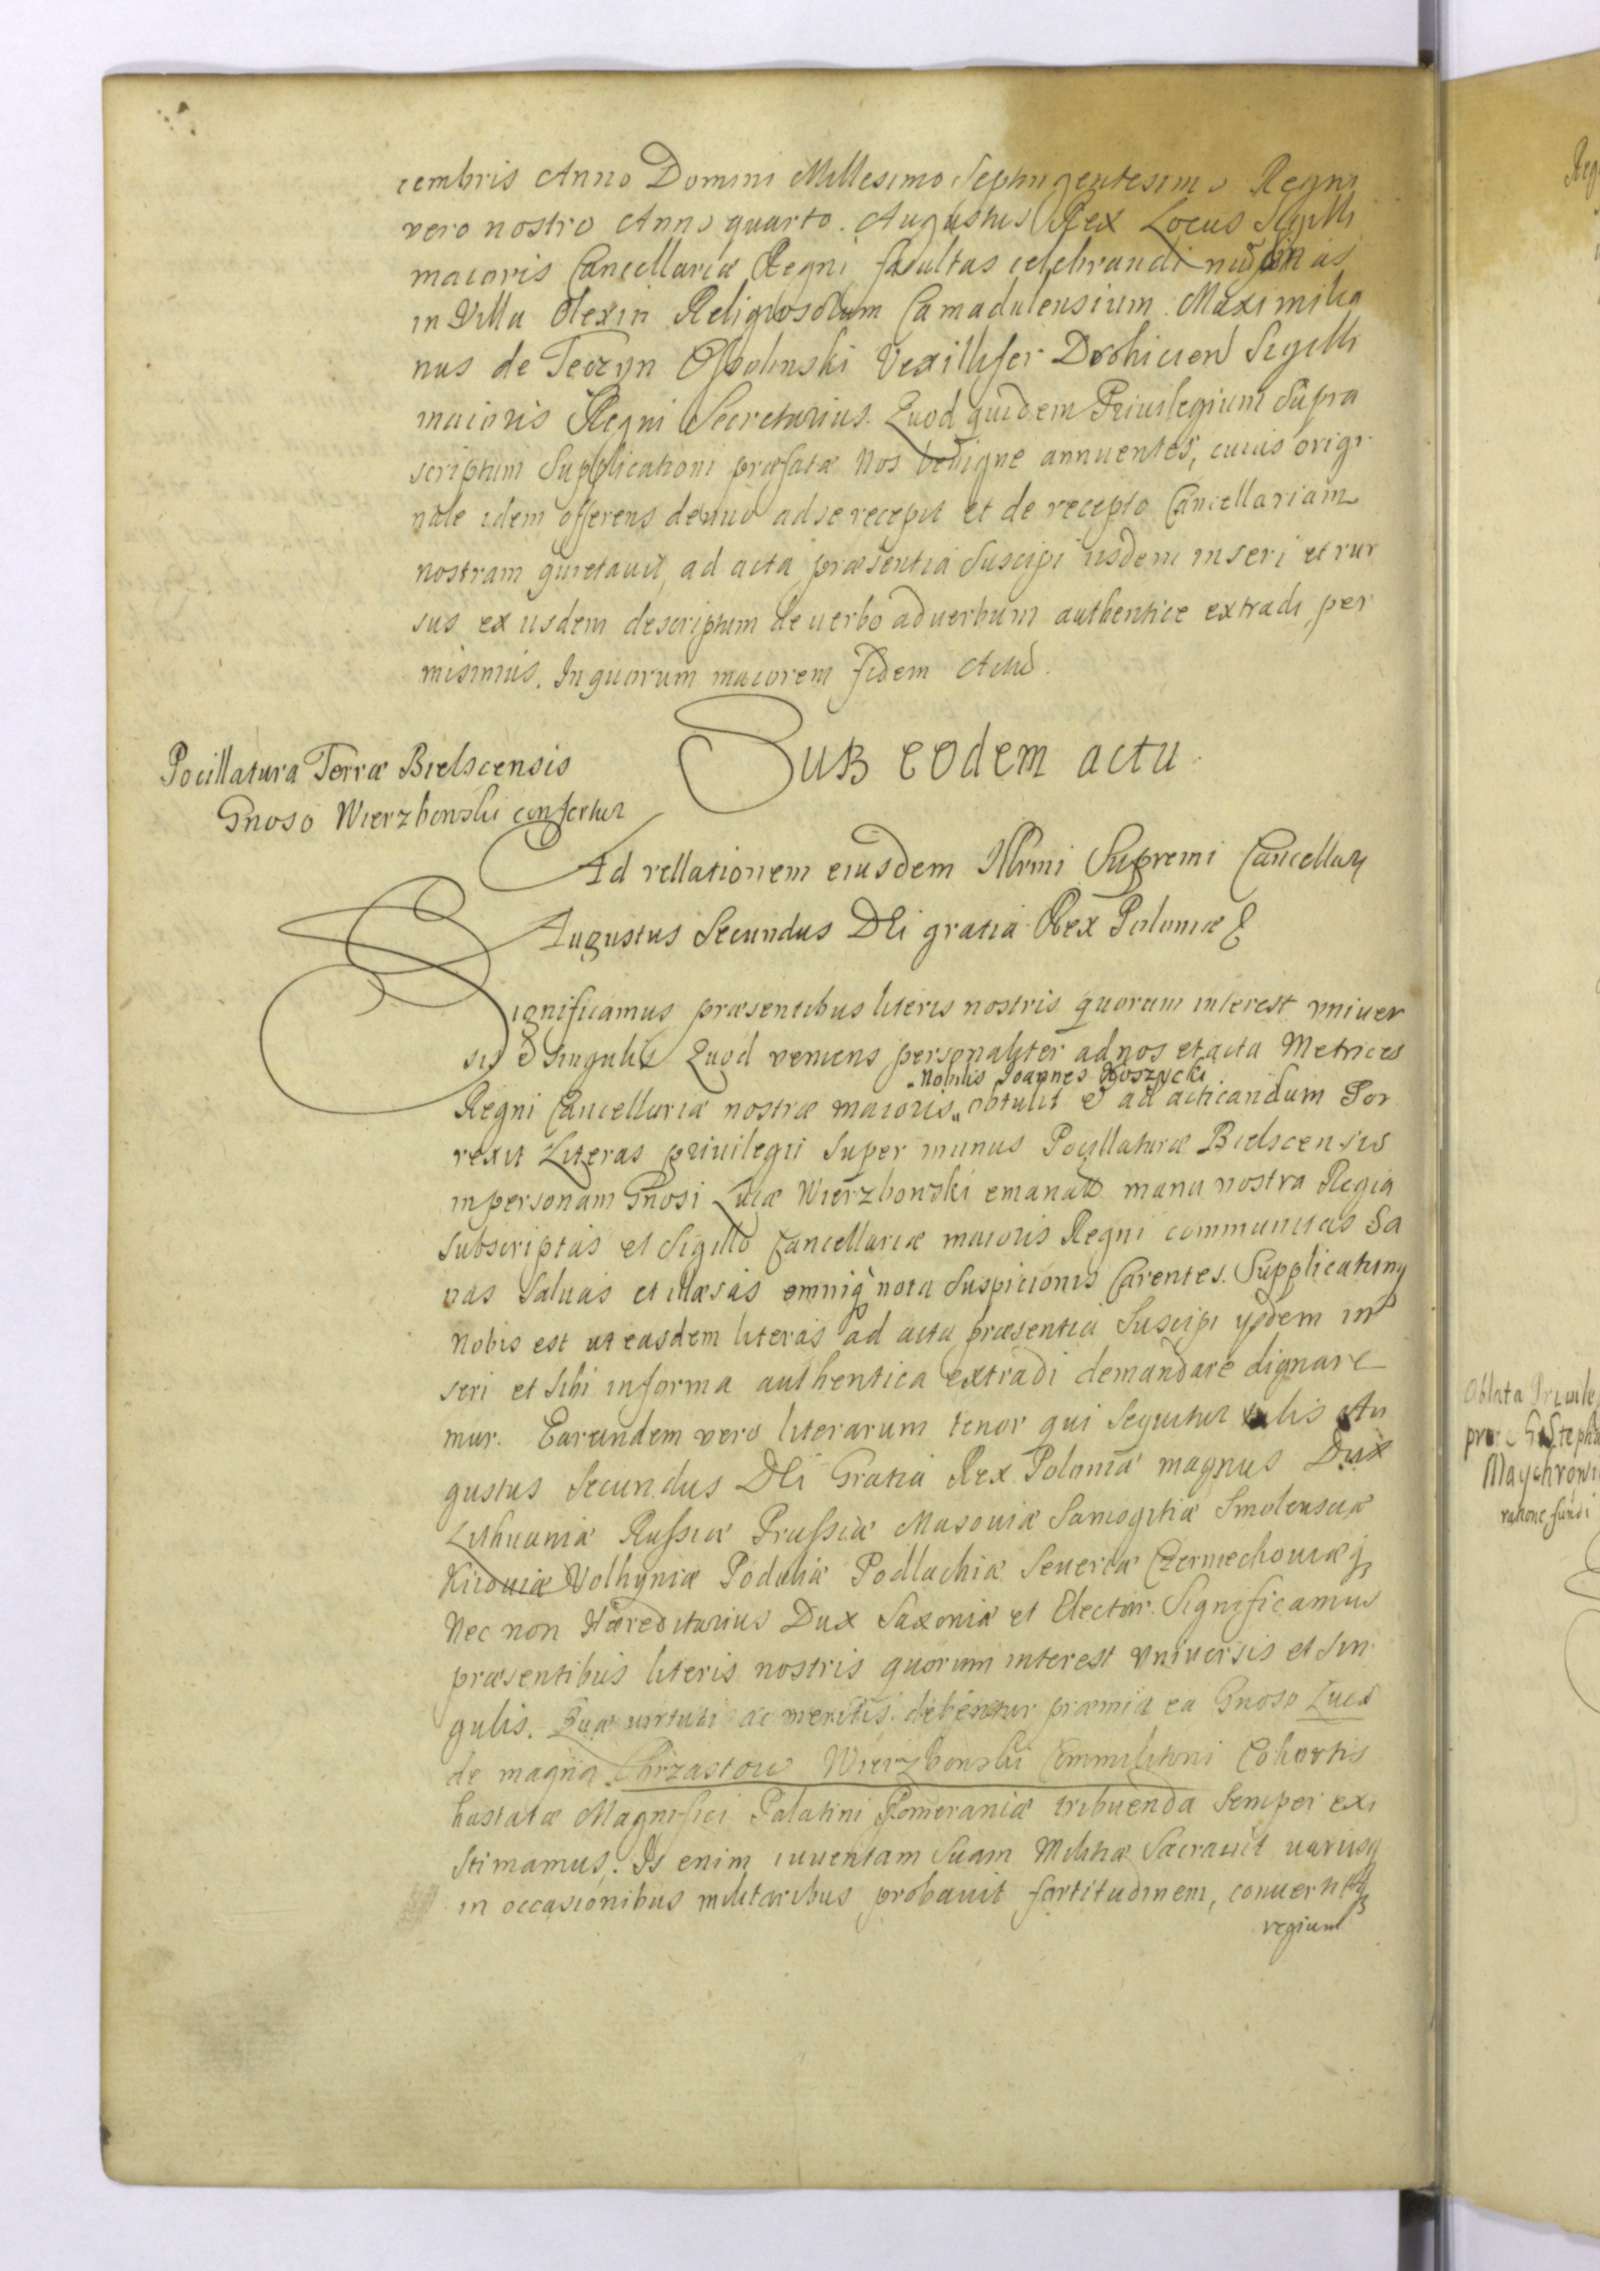 cembris Anno Domini Millesimo Septingentesimo Regni
vero nostro Anno quarto. Augustus Rex Locus Sigilli
maioris Cancellariæ Regni facultas celebrandi nundinas
in Villa Olexin Religiosorum Camadulensium. Maximilia
nus de Teczyn Ossolinski Vexillifer Drohicien Sigilli
maioris Regni Secretarius. Quod quidem Priuilegium Supra
scriptum Supplicationi præfatæ Nos benigne annuentes, cuius origi
nale idem offerens denuo ad se recepit et de recepto Cancellariam
nostram quietauit, ad acta præsentia Suscipi iisdem inseri et rur
sus ex iisdem descriptum de uerbo ad uerbum authentice extradi per
misimus. In quorum maiorem fidem Actũ.
Sub eodem actu.
Pocillatura Terræ Bielscensis
Gnoso Wierzbowski confertur
Ad rellationem eiusdem Illrmi Supremi Cancellarij
Augustus Secundus DEi gratia Rex Poloniæ &
Significamus præsentibus literis nostris quorum interest vniuer
sis & singulis Quod veniens personaliter ad nos et acta Metrices
Nobilis Joannes Koszycki
Regni Cancellariæ nostræ maioris obtulit & ad acticandum Por
rexit Literas priuilegii Super munus Pocillaturæ Bielscensis
in personam Gnosi Lucæ Wierzbowski emanatas manu nostra Regia
Subscriptas et Sigillo Cancellariæ maioris Regni communitas Sa
nas Saluas et illæsas omniq nota Suspicionis Carentes. Supplicatumq
Nobis est ut easdem literas ad acta præsentia Suscipi ysdem in
seri et Sibi in forma authentica extradi demandare dignare
mur. Earundem vero literarum tenor qui Sequitur talis Au
gustus Secundus DEi Gratia Rex Poloniæ magnus Dux
Lithuaniæ Russiæ Prussiæ Masouiæ Samogitiæ Smolensciæ
Kiiouiæ Volhyniæ Podoliæ Podlachiæ Seueriæ Czerniechouiæq
Nec non Hæreditarius Dux Saxoniæ et Elector. Significamus
præsentibus literis nostris quorum interest vniuersis et sin
gulis. Quæ uirtuti ac meritis debentur præmia ea Gnoso Lucæ
de magna Chrzastow Wierzbowski Commilitoni Cohortis
hastatæ Magnifici Palatini Pomeraniæ tribuenda Semper exi
stimamus. Is enim iuuentam Suam Militiæ Sacrauit uariisq
in occasionibus militaribus probauit fortitudinem,
regium
Oblata Priuile
Maychrowi